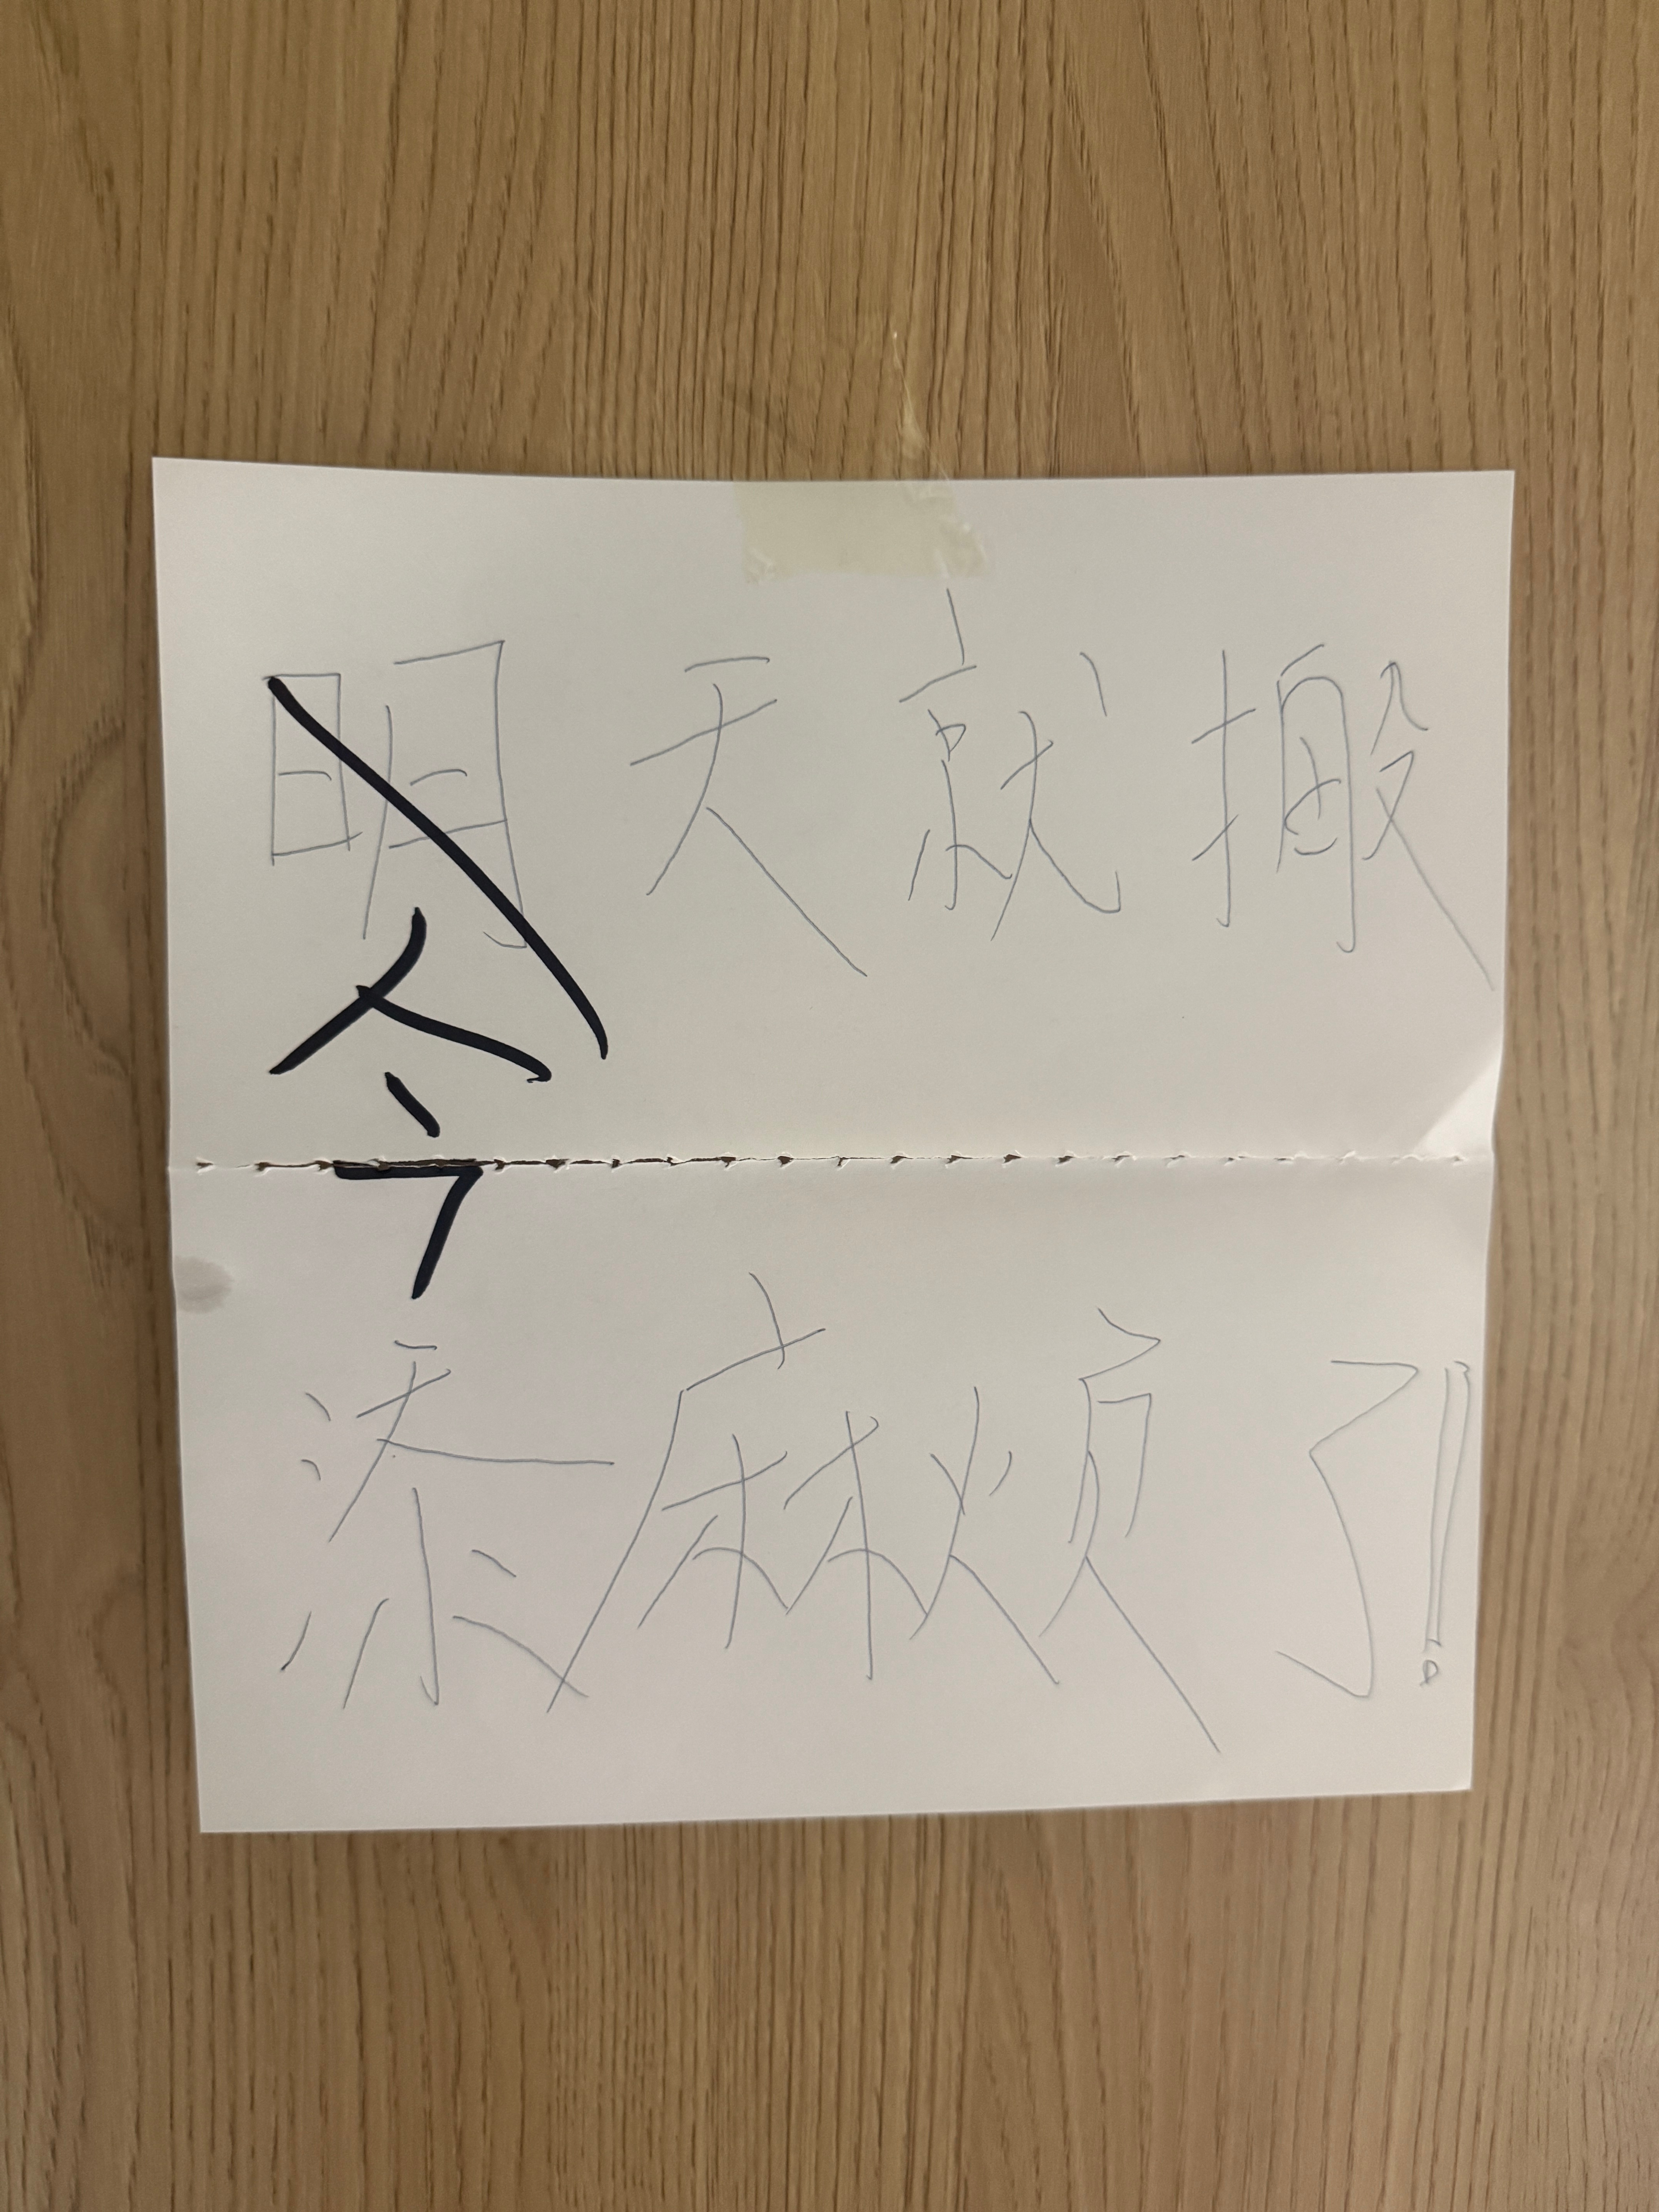 明天就搬
今
添麻烦了!!